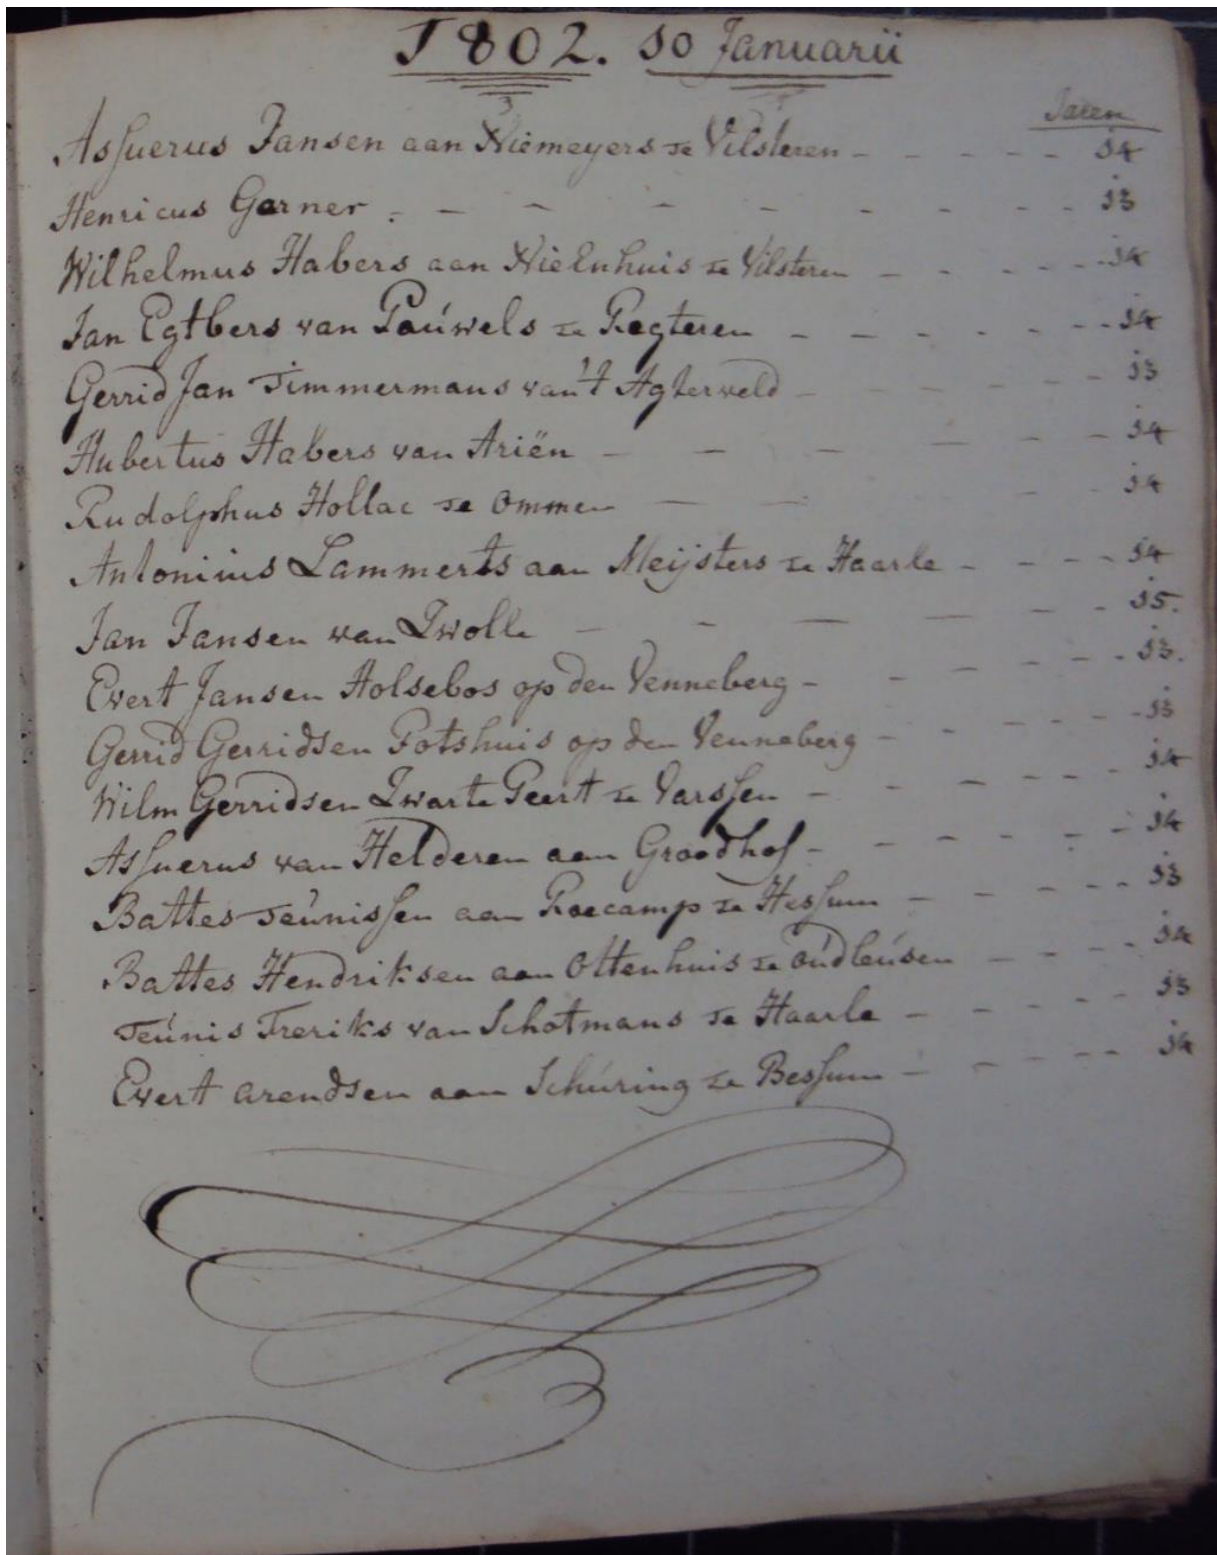 1802. 10 Januarii
Jaren
Assuerus Jansen aan Niemeyers te Vilsteren - - - - - 14
Henricus Garner - - - - - - - - - 13
Wilhelmus Habers aan Nielnhuis te Vilsteren - - - - - 14
Jan Egtbers van Pauwels te Regteren - - - - - - - 14
Gerrid Jan Timmermans van't Agterveld - - - - - - 13
Hubertus Habers van Ariën - - - - - - 14
Rudolphus Hollac te Ommen - - - - 14
Antonius Lammerts aan Meijsters te Haarle - - - - 14
Jan Jansen van Zwolle - - - - - - 15.
Evert Jansen Holsebos op den Venneberg - - - - - - 13.
Gerrid Gerridsen Potshuis op den Venneberg - - - - - - 13
Wilm Gerridsen Zwarte Geert te Varssen - - - - - - 14
Assuerus van Helderen aan Groodhof - - - - - - 14
Battes Teunissen aan Roecamp te Hessum - - - - - 13
Battes Hendriksen aan Ottenhuis te oudleusen - - - - 14
Teunis Freriks van Schotmans te Haarle - - - - - 13
Evert arendsen aan Schuring te Bessum - - - - - 14